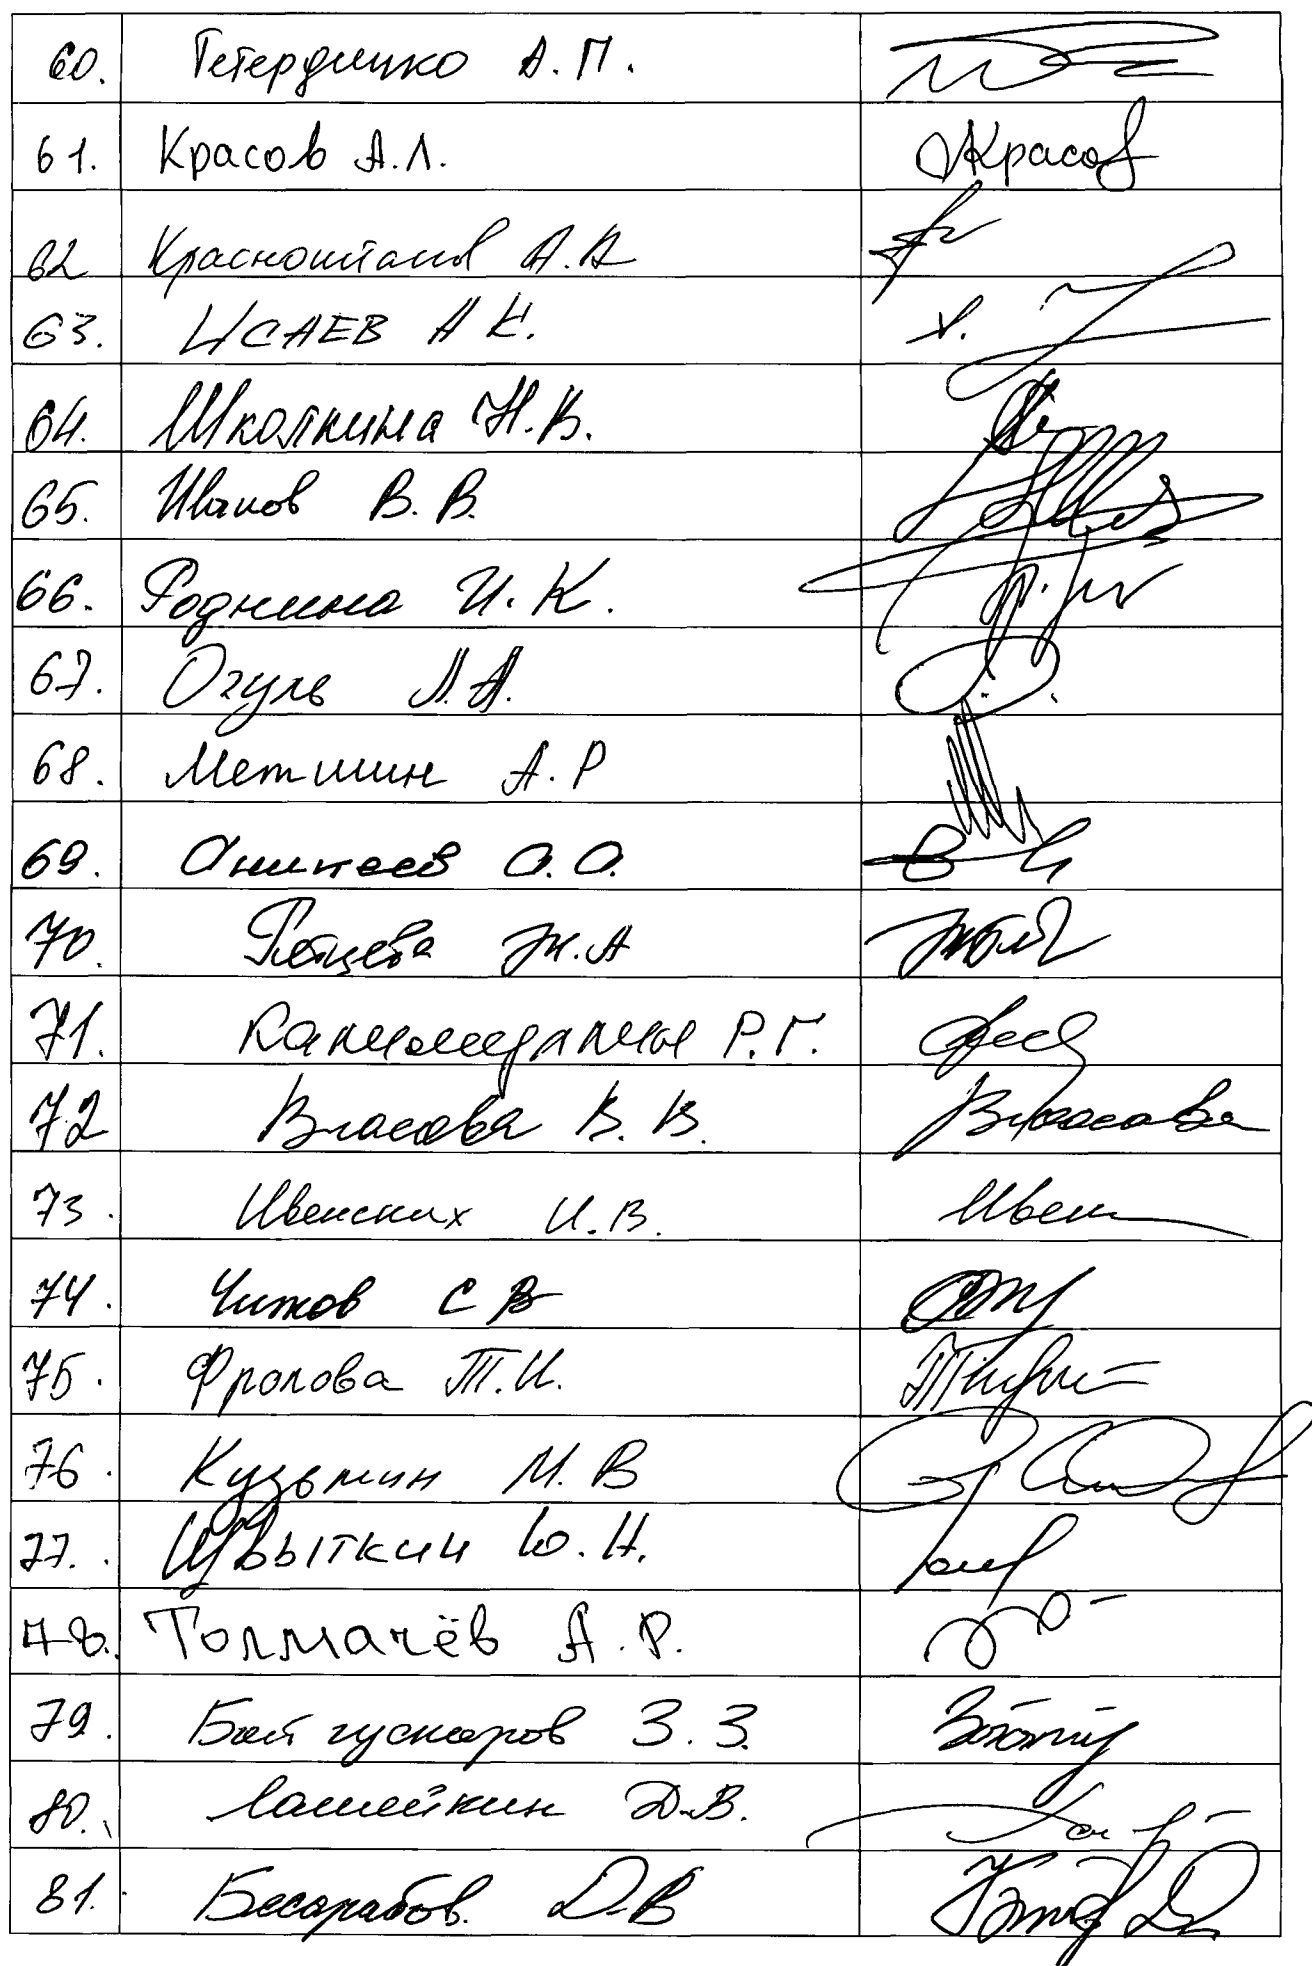 60. Гетердинко А.П.
61. Красов А.Л. Красов
62 Красноштанов А.Н
63. ИСАЕВ А К.
64. Школкина Н.В.
65. Иванов В.В.
66. Роднина И.К.
67. Огуль Л.А.
68. Метшин А.Р
69. Аникеев А.А.
70. Рябцева Ж.А
71. Р.Г.
72 Власова В.В. Власова
73. Ивенских И.В. Ивен
74. Чижов С В
75. Фролова Т.И.
76. Кузьмин М.В
77. Цыбыткин Ю.Н.
78. Толмачёв А.Р.
79. Байгускаров З.З.
80. Ламейкин Д.В.
81. Бесарабов Д.В